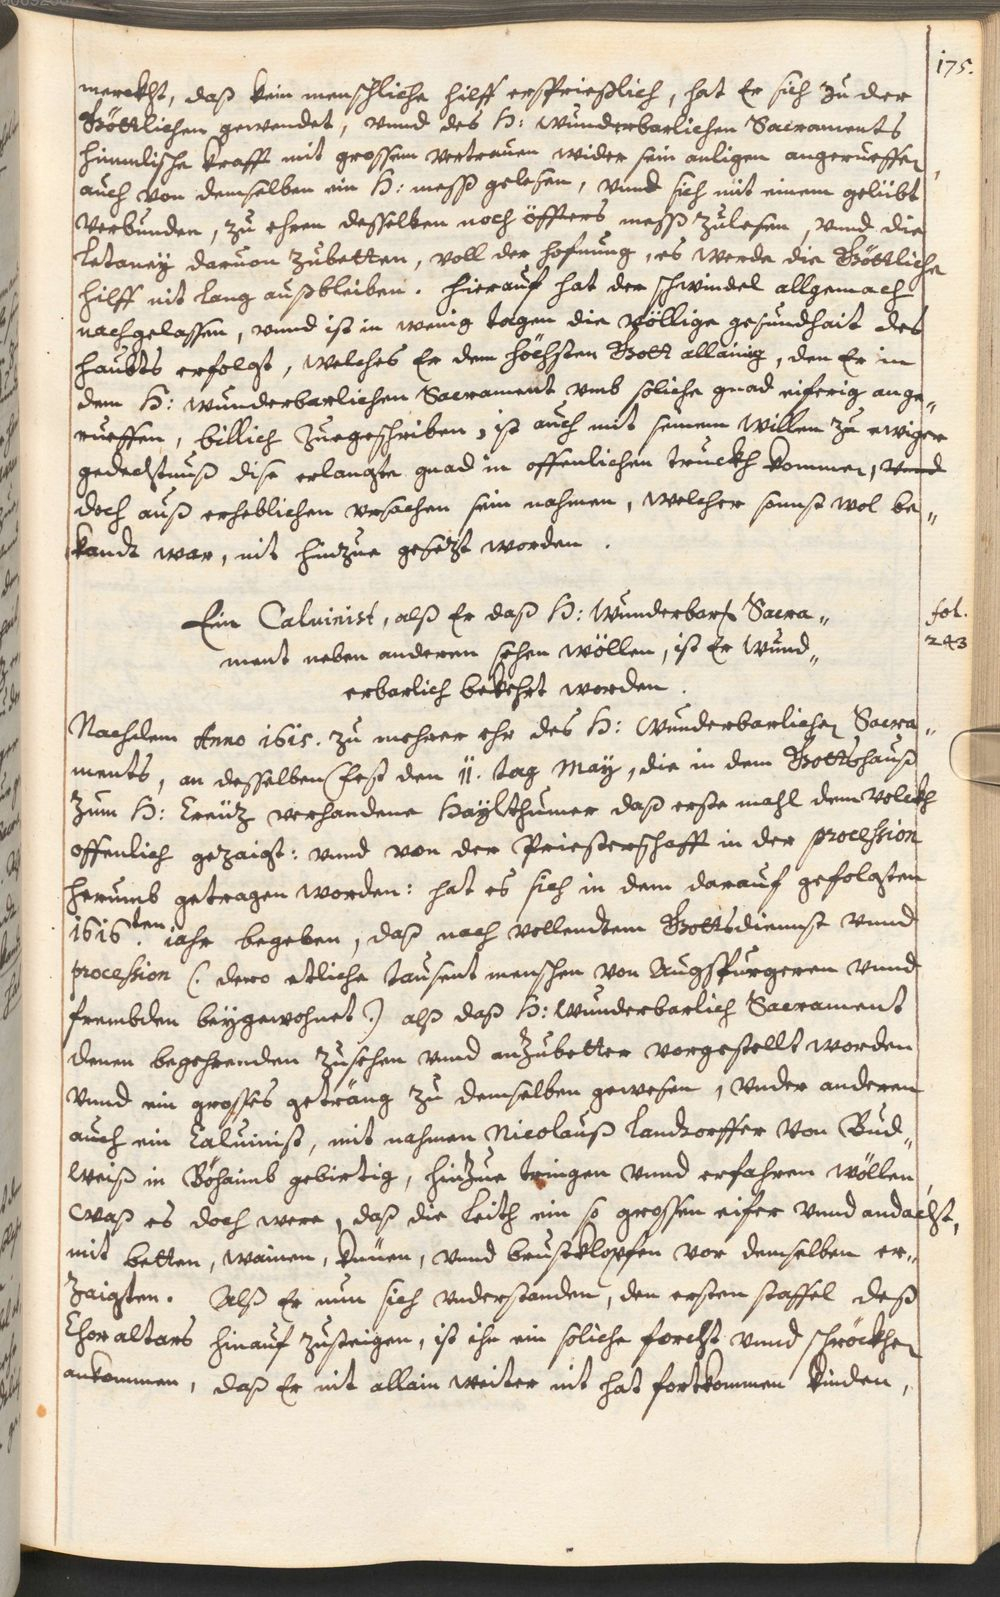 175.
merckht, daß kein menschliche hilff ersprießlich, hat Er sich zu der
Göttlichen gewendet, vnnd des H: wunderbarlichen Sacraments
himmlische krafft mit grossem vertrauen wider sein anligen angerueffen,
auch von demselben ein H: mess gelesen, vnnd sich mit einem gelübt
verbunden, zu ehren desselben noch öffters mess zulesen, vnnd die
letaney daruon zubetten, voll der hofnung, es werde die Göttliche
hilff nit lang außbleiben. Hierauf hat der schwindel allgemach
nachgelassen, vnnd ist in wenig tagen die völlige gesundhait des
haubts erfolgt, welches Er dem höchsten Gott allainig, den Er in
dem H: wunderbarlichen Sacrament vmb soliche gnad eiferig ange„
rueffen, billich zuegeschriben, ist auch mit seinem willen zu ewiger
gedechtnuß dise erlangte gnad in offenlichen truckh kommen, vnnd
doch auß erheblichen vrsachen sein nahmen, welcher sonst wol be„
kandt war, nit hinzue gesetzt worden.
Ein Caluinist, alß Er daß H: Wunderbarl: Sacra„
ment neben anderen sehen wöllen, ist Er wund„
erbarlich bekehrt worden.
fol.
243
Nachdem Anno 1615. zu mehrer ehr des H: Wunderbarlichen Sacra„
ments, an desselben Fest den 11. tag May, die in dem Gottshauß
zum H: Creütz verhandene Haylthumer daß erste mahl dem volckh
offenlich gezaigt: vnnd von der Priesterschafft in der procession
herumb getragen worden: hat es sich in dem darauf gefolgten
1616.ten iahr begeben, daß nach vollendtem Gottsdiennst vnnd
procession (: dero etliche tausent menschen von Augspurgeren vnnd
frembden beygewohnet :) alß daß H: Wunderbarlich Sacrament
denen begehrenden zusehen vnnd anzubetten vorgestellt worden
vnnd ein grosses geträng zu demselben gewesen, vnder anderen
auch ein Caluinist, mit nahmen Nicolauß Landtorffer von Bud„
weiß in Böhaimb gebirtig, hinzue tringen vnnd erfahren wöllen,
waß es doch were, daß die leith ein so grossen eifer vnnd andacht,
mit betten, wainen, knüen, vnnd brustklopfen vor demselben er„
zaigten. Alß Er nun sich vnderstanden, den ersten staffel deß
Chor altars hinauf zusteigen, ist ihn ein soliche forcht vnnd schröckhen
ankommen, daß Er nit allain weiter nit hat fortkommen kinden,